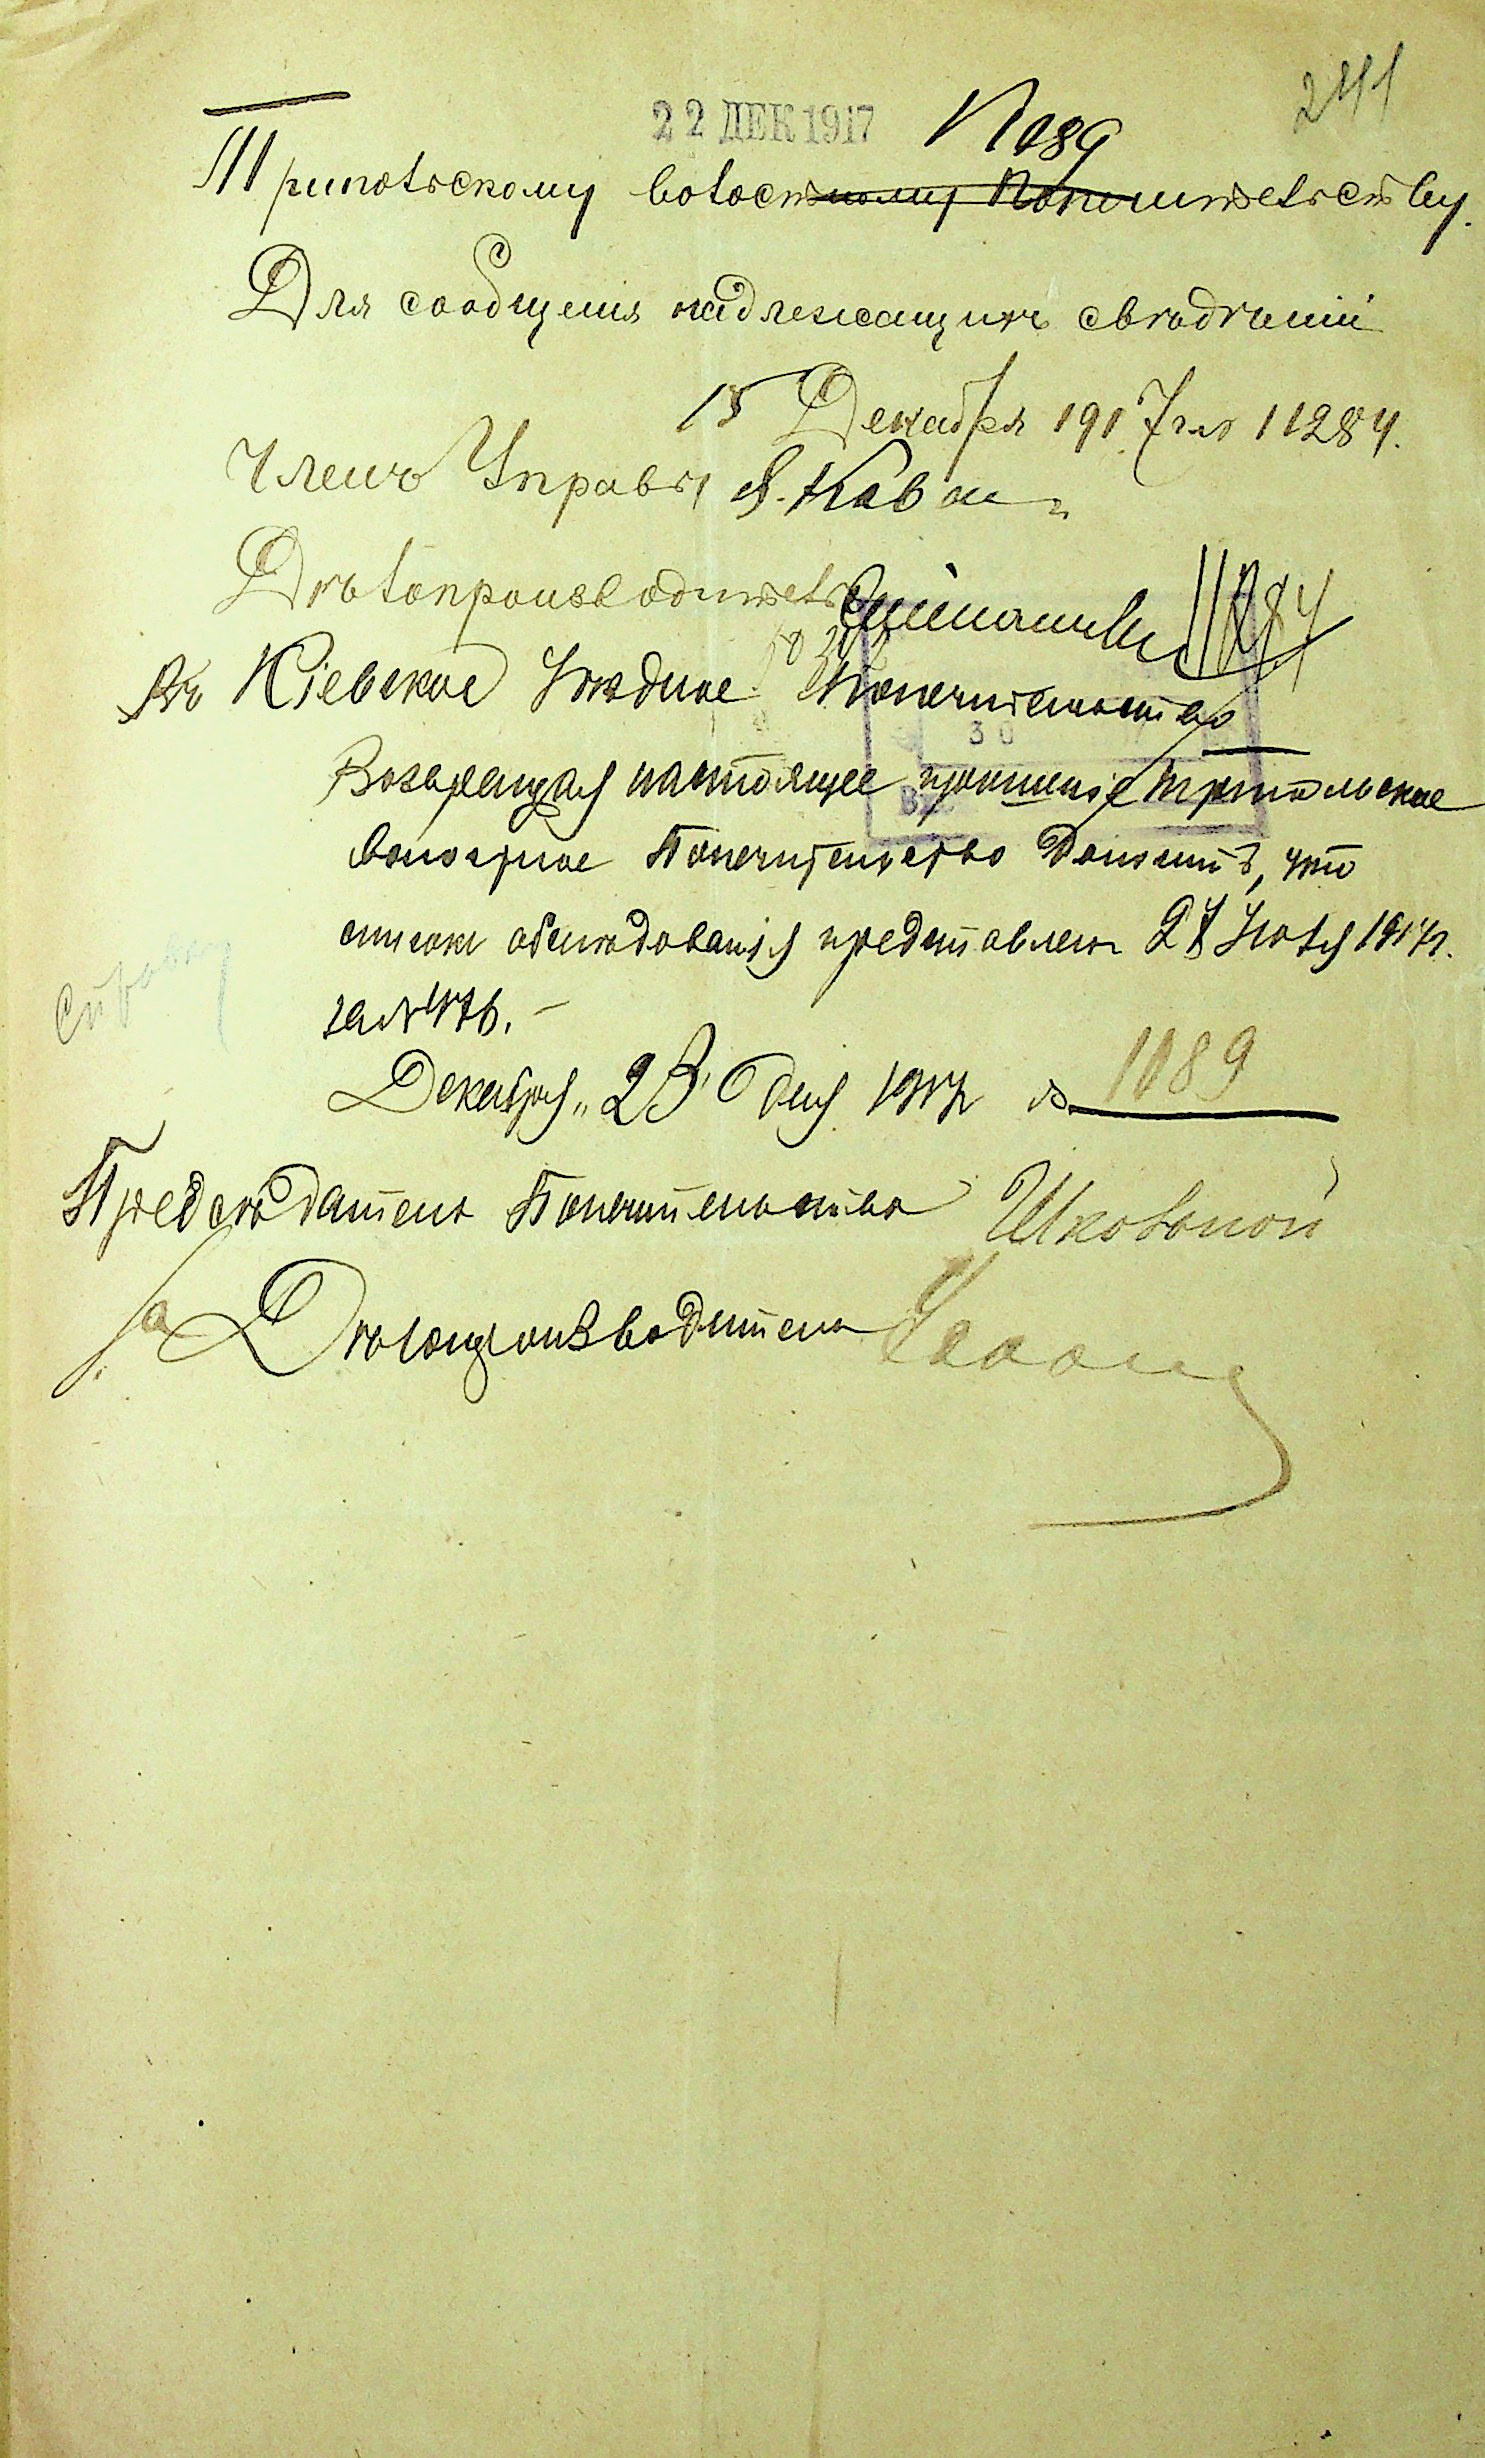 241
22 ДЕК 1917 N 1089
Трипольскому волостному Попечительству.
Для сообщенія надлежащихъ свѣдѣній
15 Декабря 1917 г. № 11284.
Членъ Управы
Дѣлопроизводитель 11284
Въ Кіевское Уѣздное Попечительство
30
Возвращая настоящее прошеніе Трипольское
волостное Попечительство доноситъ, что
списокъ обслѣдованія представленъ 27 Іюля 1917 г.
за № 476. –
Декабря „23" дня 1917 г. № 1089
Предсѣдатель Попечительства
За Дѣлопроизводителя